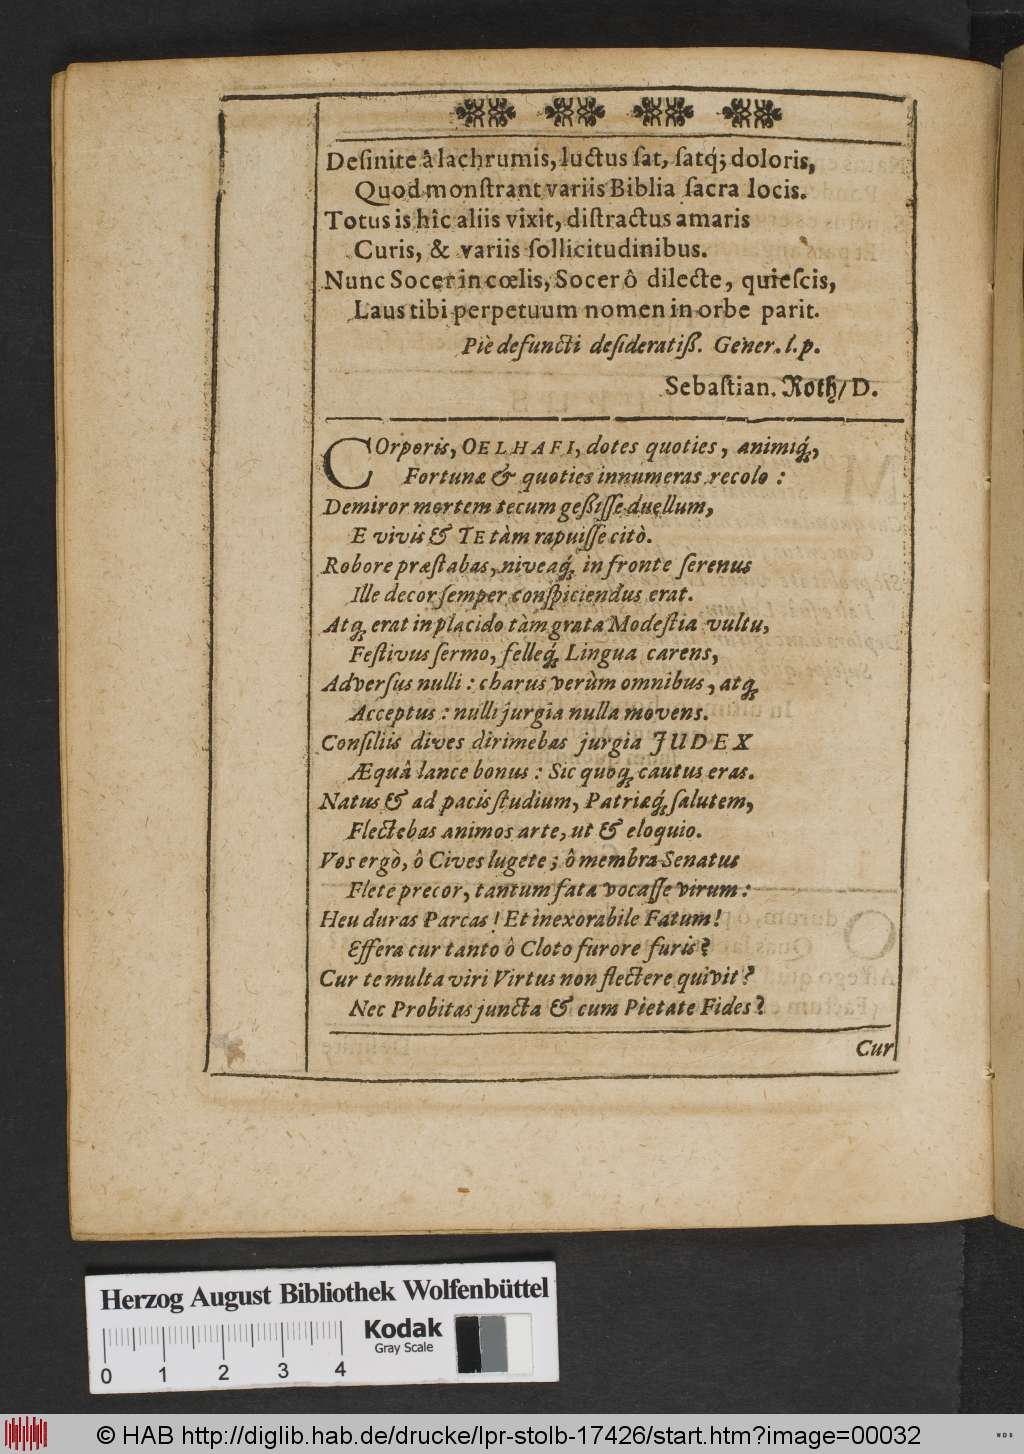 Deſinite â lachrumis, luctus ſat, ſatq́; doloris,
Quod monſtrant variis Biblia ſacra locis.
Totus is hîc aliis vixit, diſtractus amaris
Curis, & variis ſollicitudinibus.
Nunc Socer in cœlis, Socer ô dilecte, quieſcis,
Laus tibi perpetuum nomen in orbe parit.
Piè defuncti deſideratiß. Gener. l. p.
Sebaſtian. Roth/ D.
COrporis, OELHAFI, dotes quoties, animiq́;,
Fortunæ & quoties innumeras recolo :
Demiror mortem tecum geßiſſe duellum,
E vivis & TE tàm rapuiſſe citò.
Robore præſtabas, niveaq́; in fronte ſerenus
Ille decor ſemper conſpiciendus erat.
Atq; erat in placido tàm grata Modeſtia vultu,
Feſtivus ſermo, felleq́; Lingua carens,
Adverſus nulli : charus verùm omnibus, atq;
Acceptus : nulli jurgia nulla movens.
Conſiliis dives dirimebas jurgia JUDEX
Æquâ lance bonus : Sic quoq; cautus eras.
Natus & ad pacis ſtudium, Patriæq́; ſalutem,
Flectebas animos arte, ut & eloquio.
Vos ergò, ô Cives lugete ; ô membra Senatus
Flete precor, tantum fata vocaſſe virum :
Heu duras Parcas ! Et inexorabile Fatum !
Effera cur tanto ô Cloto furore furis ?
Cur te multa viri Virtus non flectere quivit ?
Nec Probitas juncta & cum Pietate Fides ?
Cur
Herzog August Bibliothek Wolfenbüttel
Kodak
Gray Scale
0 1 2 3 4
© HAB http://diglib.hab.de/drucke/lpr-stolb-17426/start.htm?image=00032
WDB